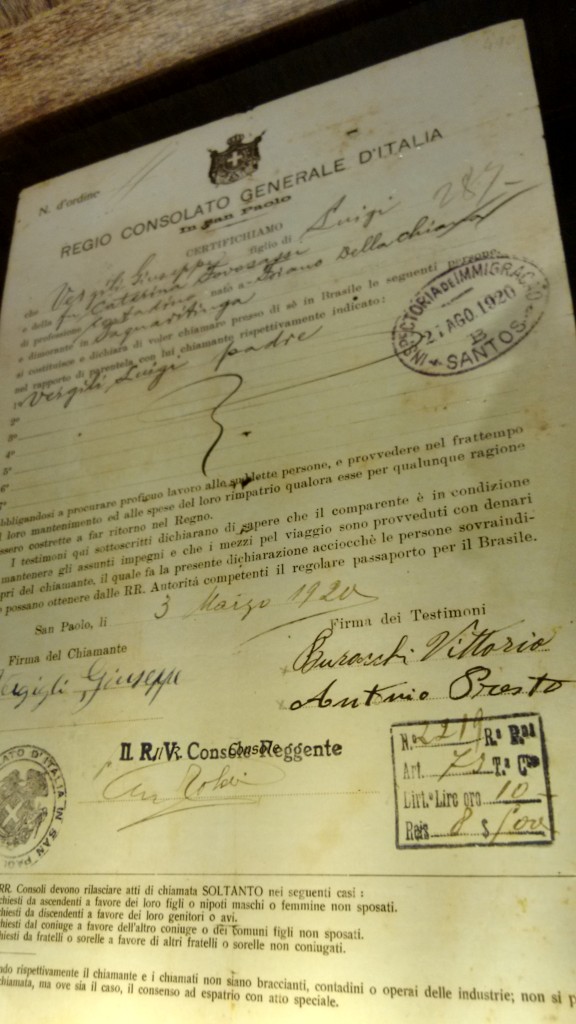 N. d'ordine
REGIO CONSOLATO GENERALE D'ITALIA
In San Paolo
CERTIFICHIAMO
287-
che Vergili Giuseppe figlio di Luigi
e della fu Caterina
di professione Contadino nato a
e dimorante in Taquaritinga
si costituisce e dichiara di voler chiamare presso di sè in Brasile le seguenti persone,
nel rapporto di parentela con lui chiamante rispettivamente indicato:
1° Vergili Luigi padre
2°
3°
4°
5°
6°
7°
INSPECTORIA DE IMMIGRAÇÃO
27 AGO 1920
B
SANTOS
bbligandosi a procurare proficuo lavoro alle suddette persone, e provvedere nel frattempo
l loro mantenimento ed alle spese del loro rimpatrio qualora esse per qualunque ragione
ssero costrette a far ritorno nel Regno.
I testimoni qui sottoscritti dichiarano di sapere che il comparente è in condizione
mantenere gli assunti impegni e che i mezzi pel viaggio sono provveduti con denari
pri del chiamante, il quale fa la presente dichiarazione acciocchè le persone sovraindi-
possano ottenere dalle RR. Autorità competenti il regolare passaporto per il Brasile.
San Paolo, li 3 Marzo 1920
Firma del Chiamante
Firma dei Testimoni
ergigli Giuseppe
Buraschi Vittorio
Antonio Presto
Il R. V. Console Reggente
ATO D'ITALIA IN SAN PAO
N.° 2219 R.ª P.ml
Art. 73 T.ª C.re
Dirt.º Lire oro 10-
Reis 8 $ 500
RR. Consoli devono rilasciare atti di chiamata SOLTANTO nei seguenti casi :
chiesti da ascendenti a favore dei loro figli o nipoti maschi o femmine non sposati.
chiesti da discendenti a favore dei loro genitori o avi.
chiesti dal coniuge a favore dell'altro coniuge o dei comuni figli non sposati.
hiesti da fratelli o sorelle a favore di altri fratelli o sorelle non coniugati.
ndo rispettivamente il chiamante e i chiamati non siano braccianti, contadini o operai delle industrie; non si p
chiamata, ma ove sia il caso, il consenso ad espatrio con atto speciale.